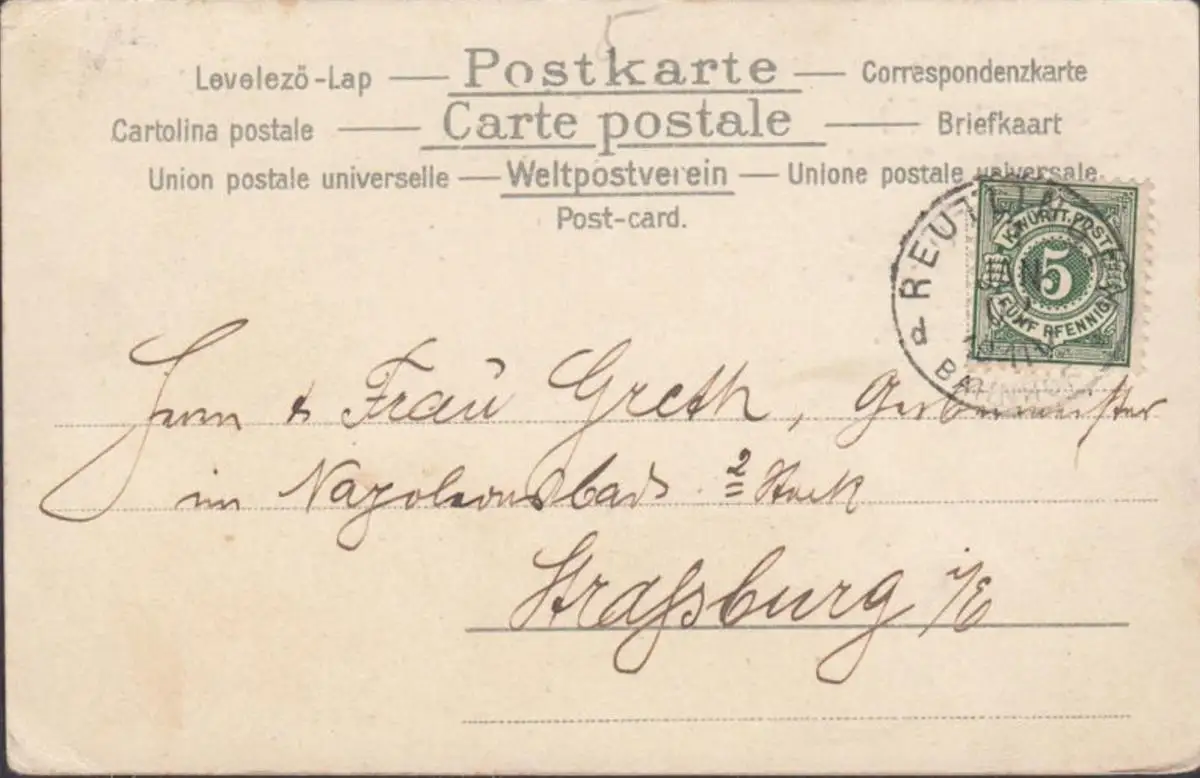 5
Levelező-Lap — Postkarte — Correspondenzkarte
Cartolina postale — Carte postale — Briefkaart
Union postale universelle — Weltpostverein — Unione postale universale
Post-card.
REUTLINGEN
JAN
BAHNHOF
K.WÜRTT.POST
5
FÜNF PFENNIG
Herrn & Frau Greth, Gerbermeister
im Napoleonsbad 2 Stock
Straßburg i/E